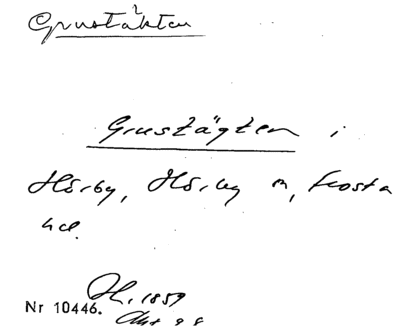 Grustäkten
Grustägten i
Hörby, Hörby s, Frosta
hd.
Nr 10446. 1859